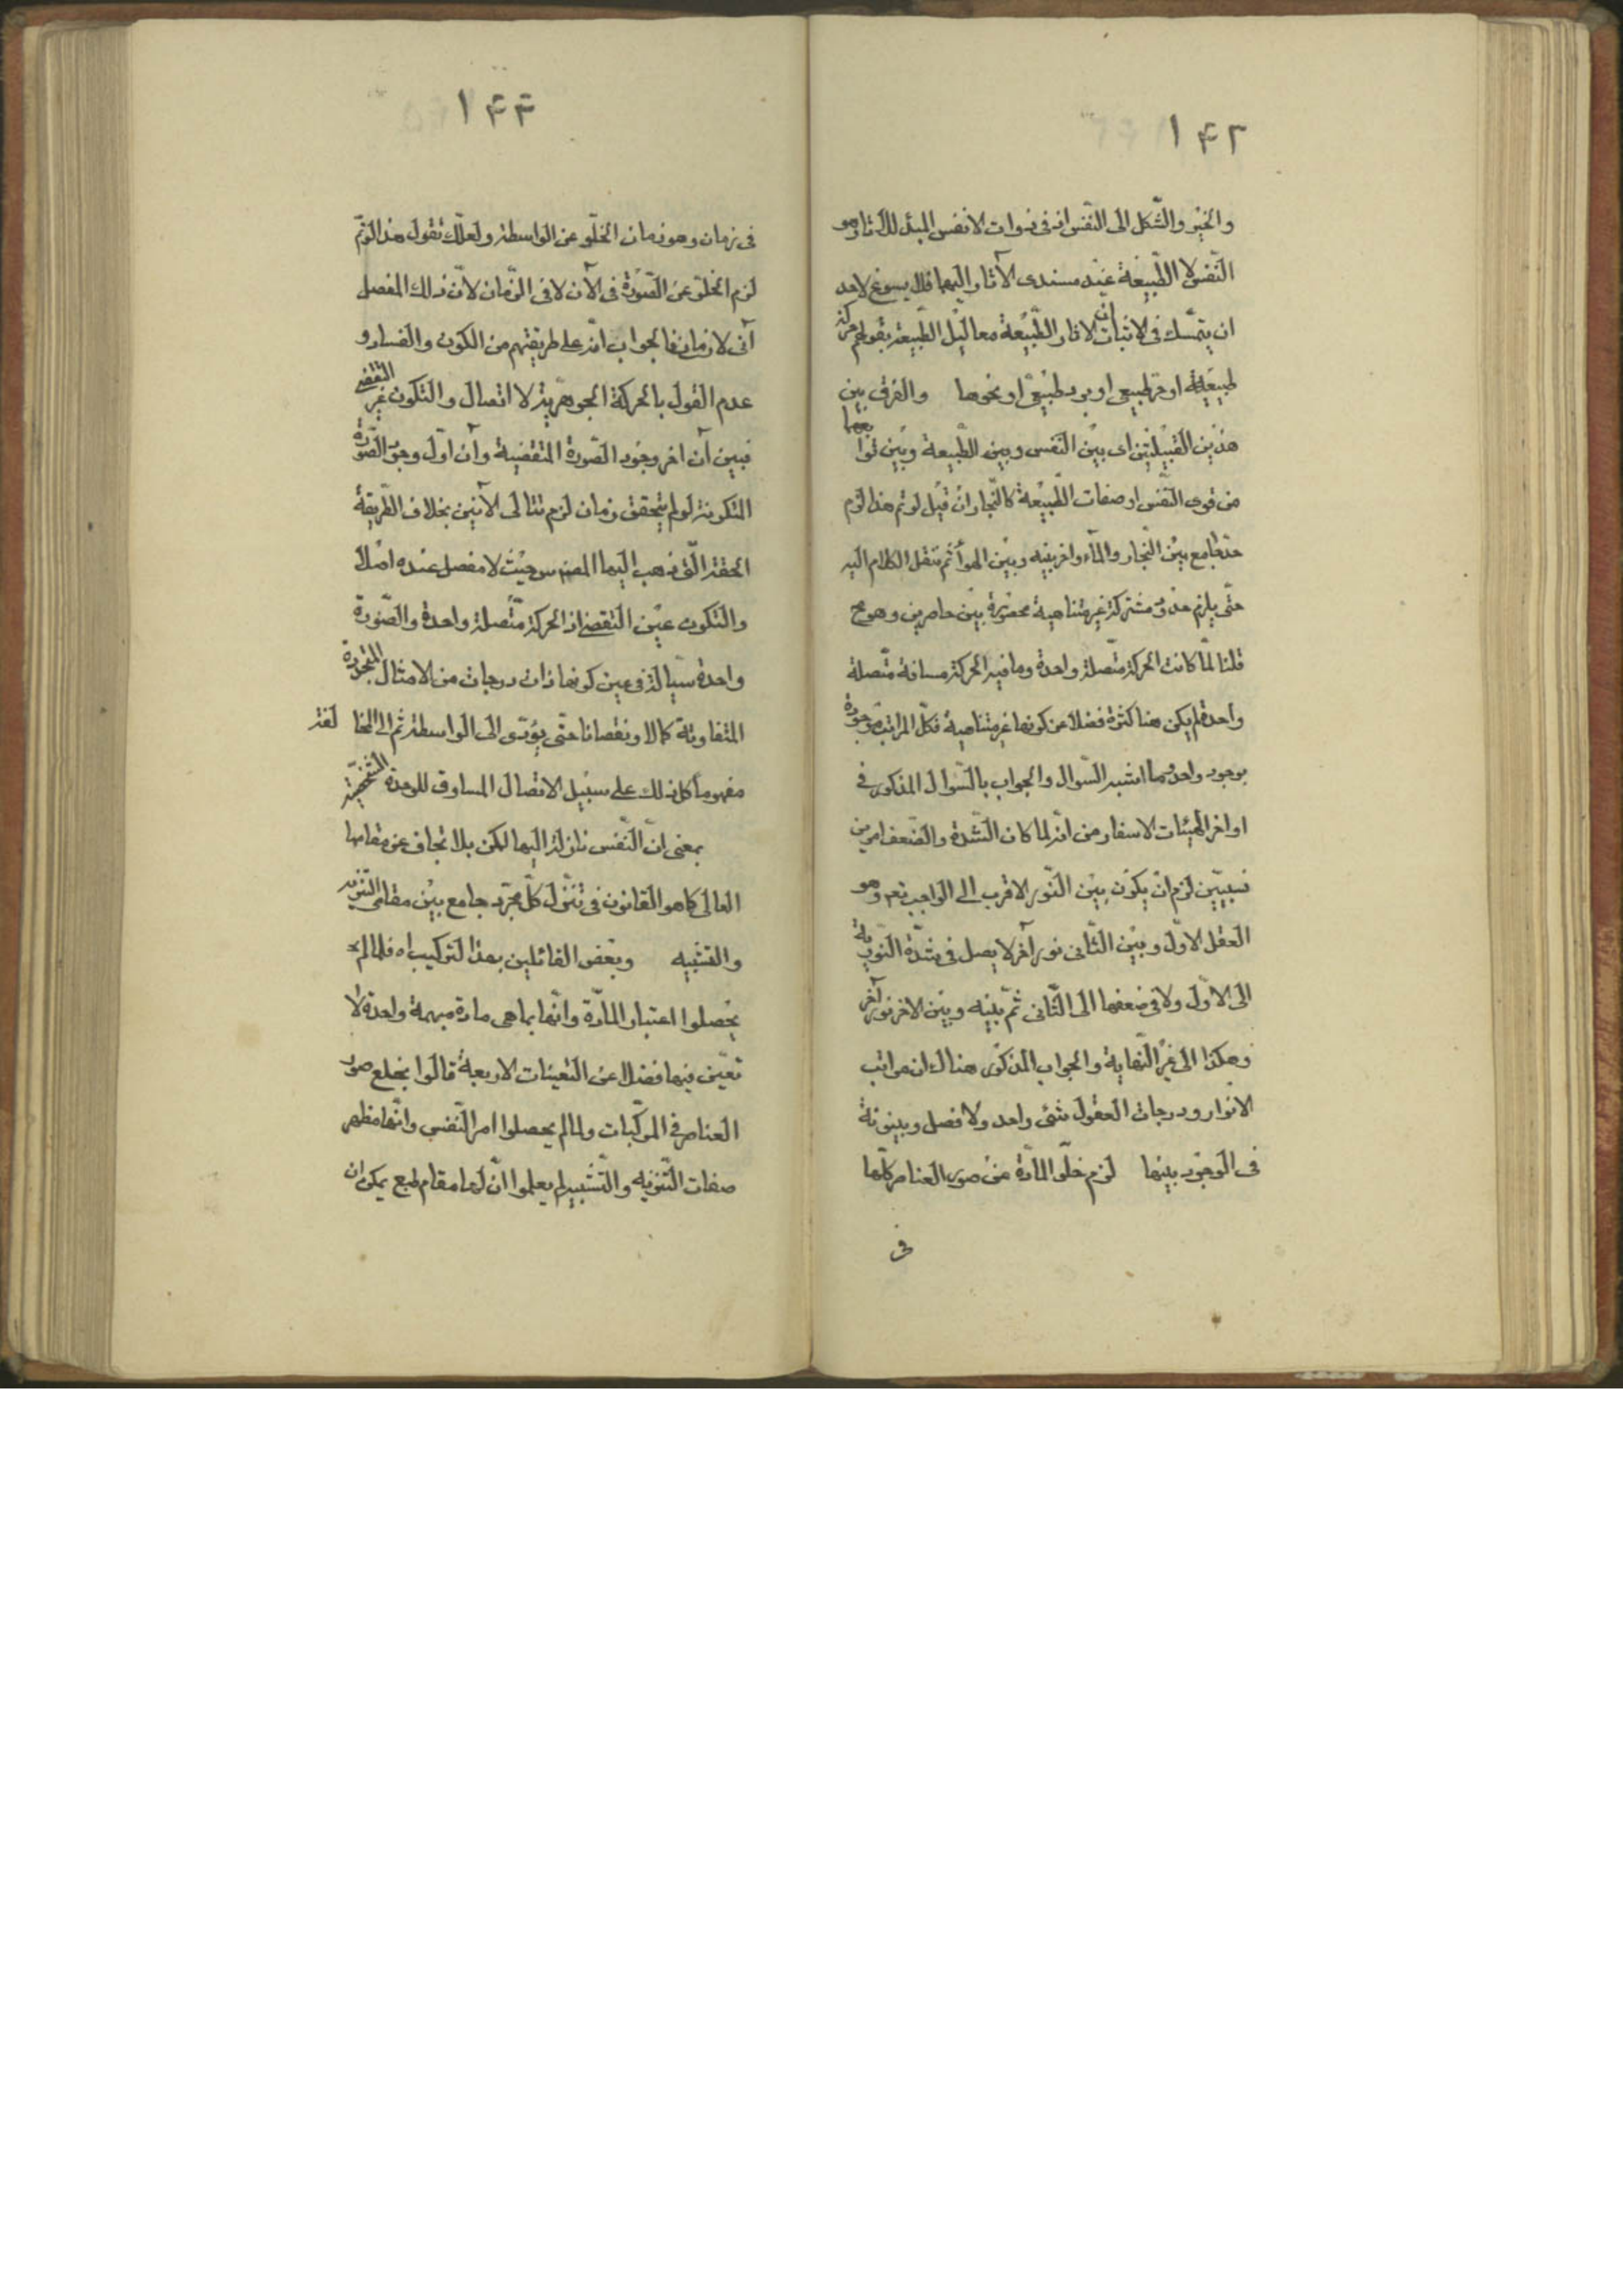 ١۴٢
والحيز والشّكل الى النّفس انه فى ذوات الانفس المبدء لتلك الآثار هو
النّفس لا الطّبيعة عند مسندى الآثار اليها فلا يسوغ لاحد
ان يتمسّك فى اثبات ان الآثار الطّبيعة معاليل الطّبيعة بقولهم حركة
طبيعيّة او حرّ طبيعى او برد طبيعىّ او نحوها والفرق بين
هذين القبيلتين اى بين النّفس وبين الطّبيعة وبين توابعهما
من قوى النّفس او صفات الطّبيعة كالنّجار ان قيل لو تم هذا لزم
حدّ جامع بين النّجار والمآء واخر بينه وبين الهوآء ثم ننقل الكلام اليه
حتّى يلزم حدود مشتركة غير متناهية محصورة بين حاصرين وهو مح
قلنا لمّا كانت الحركة متّصلة واحدة وما فيه الحركة مسافة متّصلة
واحدة لم يكن هنا كثرة فضلا عن كونها غير متناهية فكلّ المراتب موجودة
بوجود واحد وما اشبه السّوال والجواب بالسّوال المذكور فى
اواخر الهيئات الاسفار من انّه لما كان الشّدة والضّعف امرين
نسبيّين لزم ان يكون بين النّور الاقرب الى الواجب تعه وهو
العقل الاوّل وبين الثّانى نور آخر لا يصل فى شدّة النّوريّة
الى الاوّل ولا فى ضعفها الى الثّانى ثمّ بينه وبين الاخر نور آخر
وهكذا الى غير النّهاية والجواب المذكور هناك ان مراتب
الانوار ودرجات العقول شئ واحد ولا فصل وبينونة
فى الوجود بينها لزم خلّو المادّة من صور العناصر كلّها
فى
١۴٣
فى زمان وهو زمان الخلّو عن الواسطة ولعلّك تقول هذا لو تمّ
لزم الخلّو عن الصّورة فى الآن لا فى الزّمان لانّ ذلك المفصل
آنى لا زمانى فالجواب انّه على طريقتهم من الكون والفساد و
عدم القول بالحركة الجوهريّة لا اتصال والتّكون غير التقضى
فبين آن اخر وجود الصّورة المتقضية وآن اوّل وجود الصّورة
المتكونة لو لم يتحقق زمان لزم تتالى الآنين بخلاف الطّريقة
الحقة الّتى ذهب اليها المصنف س حيث لا مفصل عنده اصلا
والتّكون عين التّقضى اذ الحركة متّصلة واحدة والصّورة
واحدة سيّالة فى عين كونها ذات درجات من الامثال المتجددة
المتفاوتة كمالا ونقصانا حتّى يؤدّى الى الواسطة ثم الى المخالفة
مفهوما كل ذلك على سبيل الاتصال المساوق للوحدة الشخصيّة
بمعنى انّ النّفس نازلة اليها لكن بلا تجاف عن مقامها
العالى كما هو القانون فى تنزّل كلّ مجرّد جامع بين مقامى التّنزيه
والتشبيه وبعض القائلين بهذا التركيب اه فلما لم
يحصلوا اعتبار المادّة وانّها بما هى مادة مبهمة واحدة لا
تعيّن فيها فضلا عن التعينات الاربعة قالوا بخلع صور
العناصر فى المركّبات ولما لم يحصلوا امر النّفس وانّها مظهر
صفات التّنزيه والتّشبيه لم يعلموا انّ لها مقام طبع يمكن ان